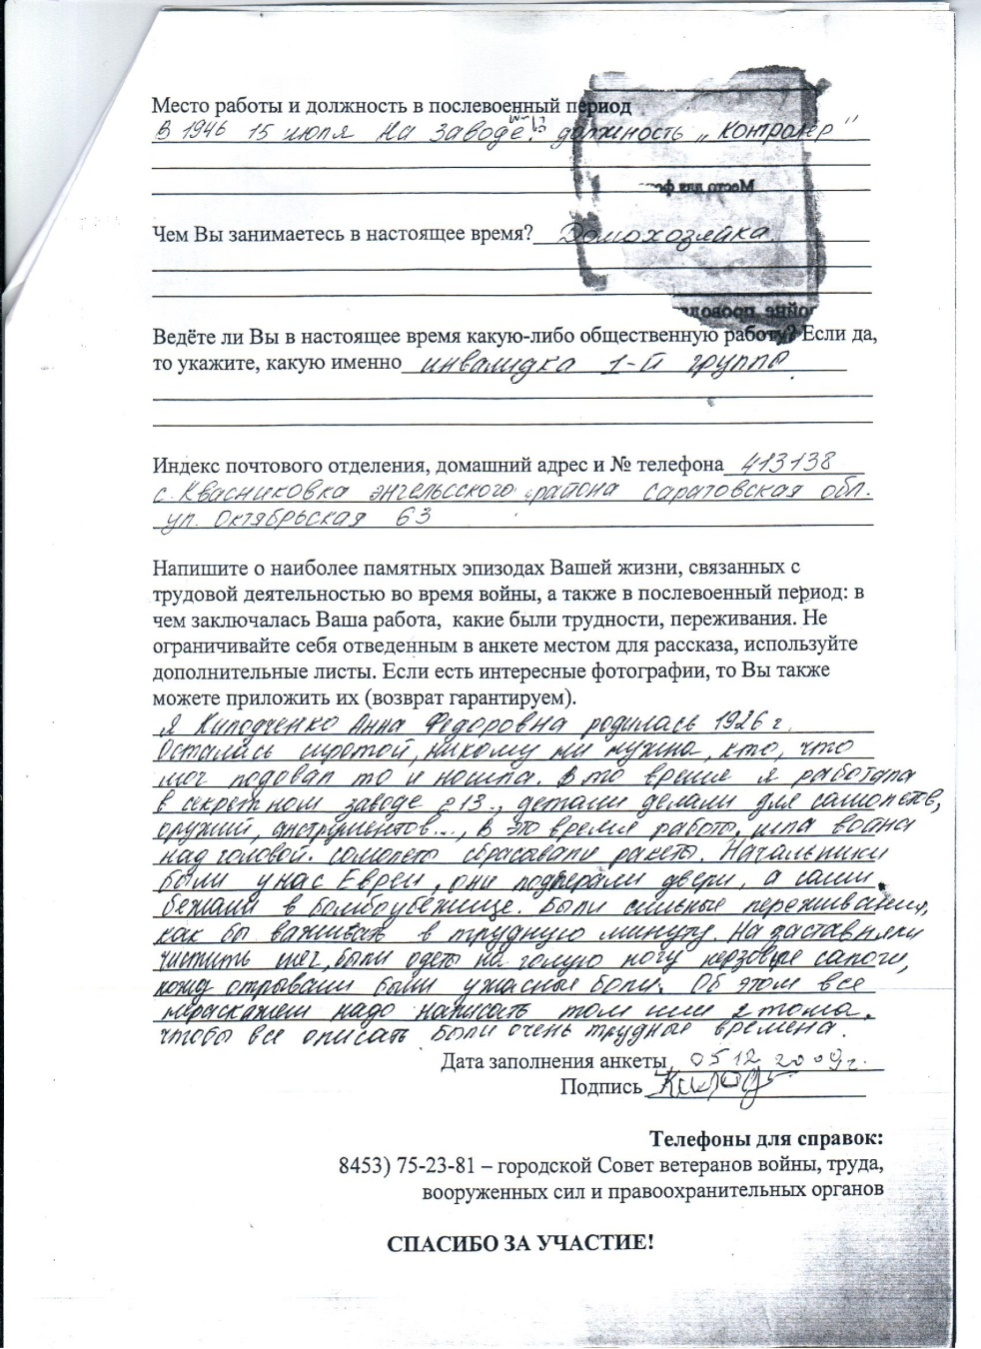 Место работы и должность в послевоенный период
В 1946 15 июля на заводе. должность „Контролер"
Место для фо
Чем Вы занимаетесь в настоящее время? Домохозяйка.
ойне провод
Ведёте ли Вы в настоящее время какую-либо общественную работу? Если да,
то укажите, какую именно инвалидка 1-й группы.
Индекс почтового отделения, домашний адрес и № телефона 413138
с. Квасниковка энгельсского района саратовская обл.
ул. Октябрьская 63
Напишите о наиболее памятных эпизодах Вашей жизни, связанных с
трудовой деятельностью во время войны, а также в послевоенный период: в
чем заключалась Ваша работа, какие были трудности, переживания. Не
ограничивайте себя отведенным в анкете местом для рассказа, используйте
дополнительные листы. Если есть интересные фотографии, то Вы также
можете приложить их (возврат гарантируем).
Я Анна Федоровна родилась 1926 г.
Осталась сиротой, никому ни нужна, кто, что
мог подовал то и носила. В то время я работала
в секретном заводе 213., детали делали для самолетов,
оружий, инструментов..., в это время работы, шла война
над головой. самолеты сбрасовали ракеты. Начальники
были у нас Евреи, они подперали двери, а сами
бежали в бомбоубежище. Были сильные переживания,
как бы выживать в трудную минуту. Нас заставляли
чистить снег, были одеты на голую ногу керзовые сапоги,
кожу отрывали были ужасные боли. Об этом все
нераскажем надо написать том или 2 тома.
чтобы все описать были очень трудные времена.
Дата заполнения анкеты 05 12 2009г.
Подпись
Телефоны для справок:
8453) 75-23-81 – городской Совет ветеранов войны, труда,
вооруженных сил и правоохранительных органов
СПАСИБО ЗА УЧАСТИЕ!